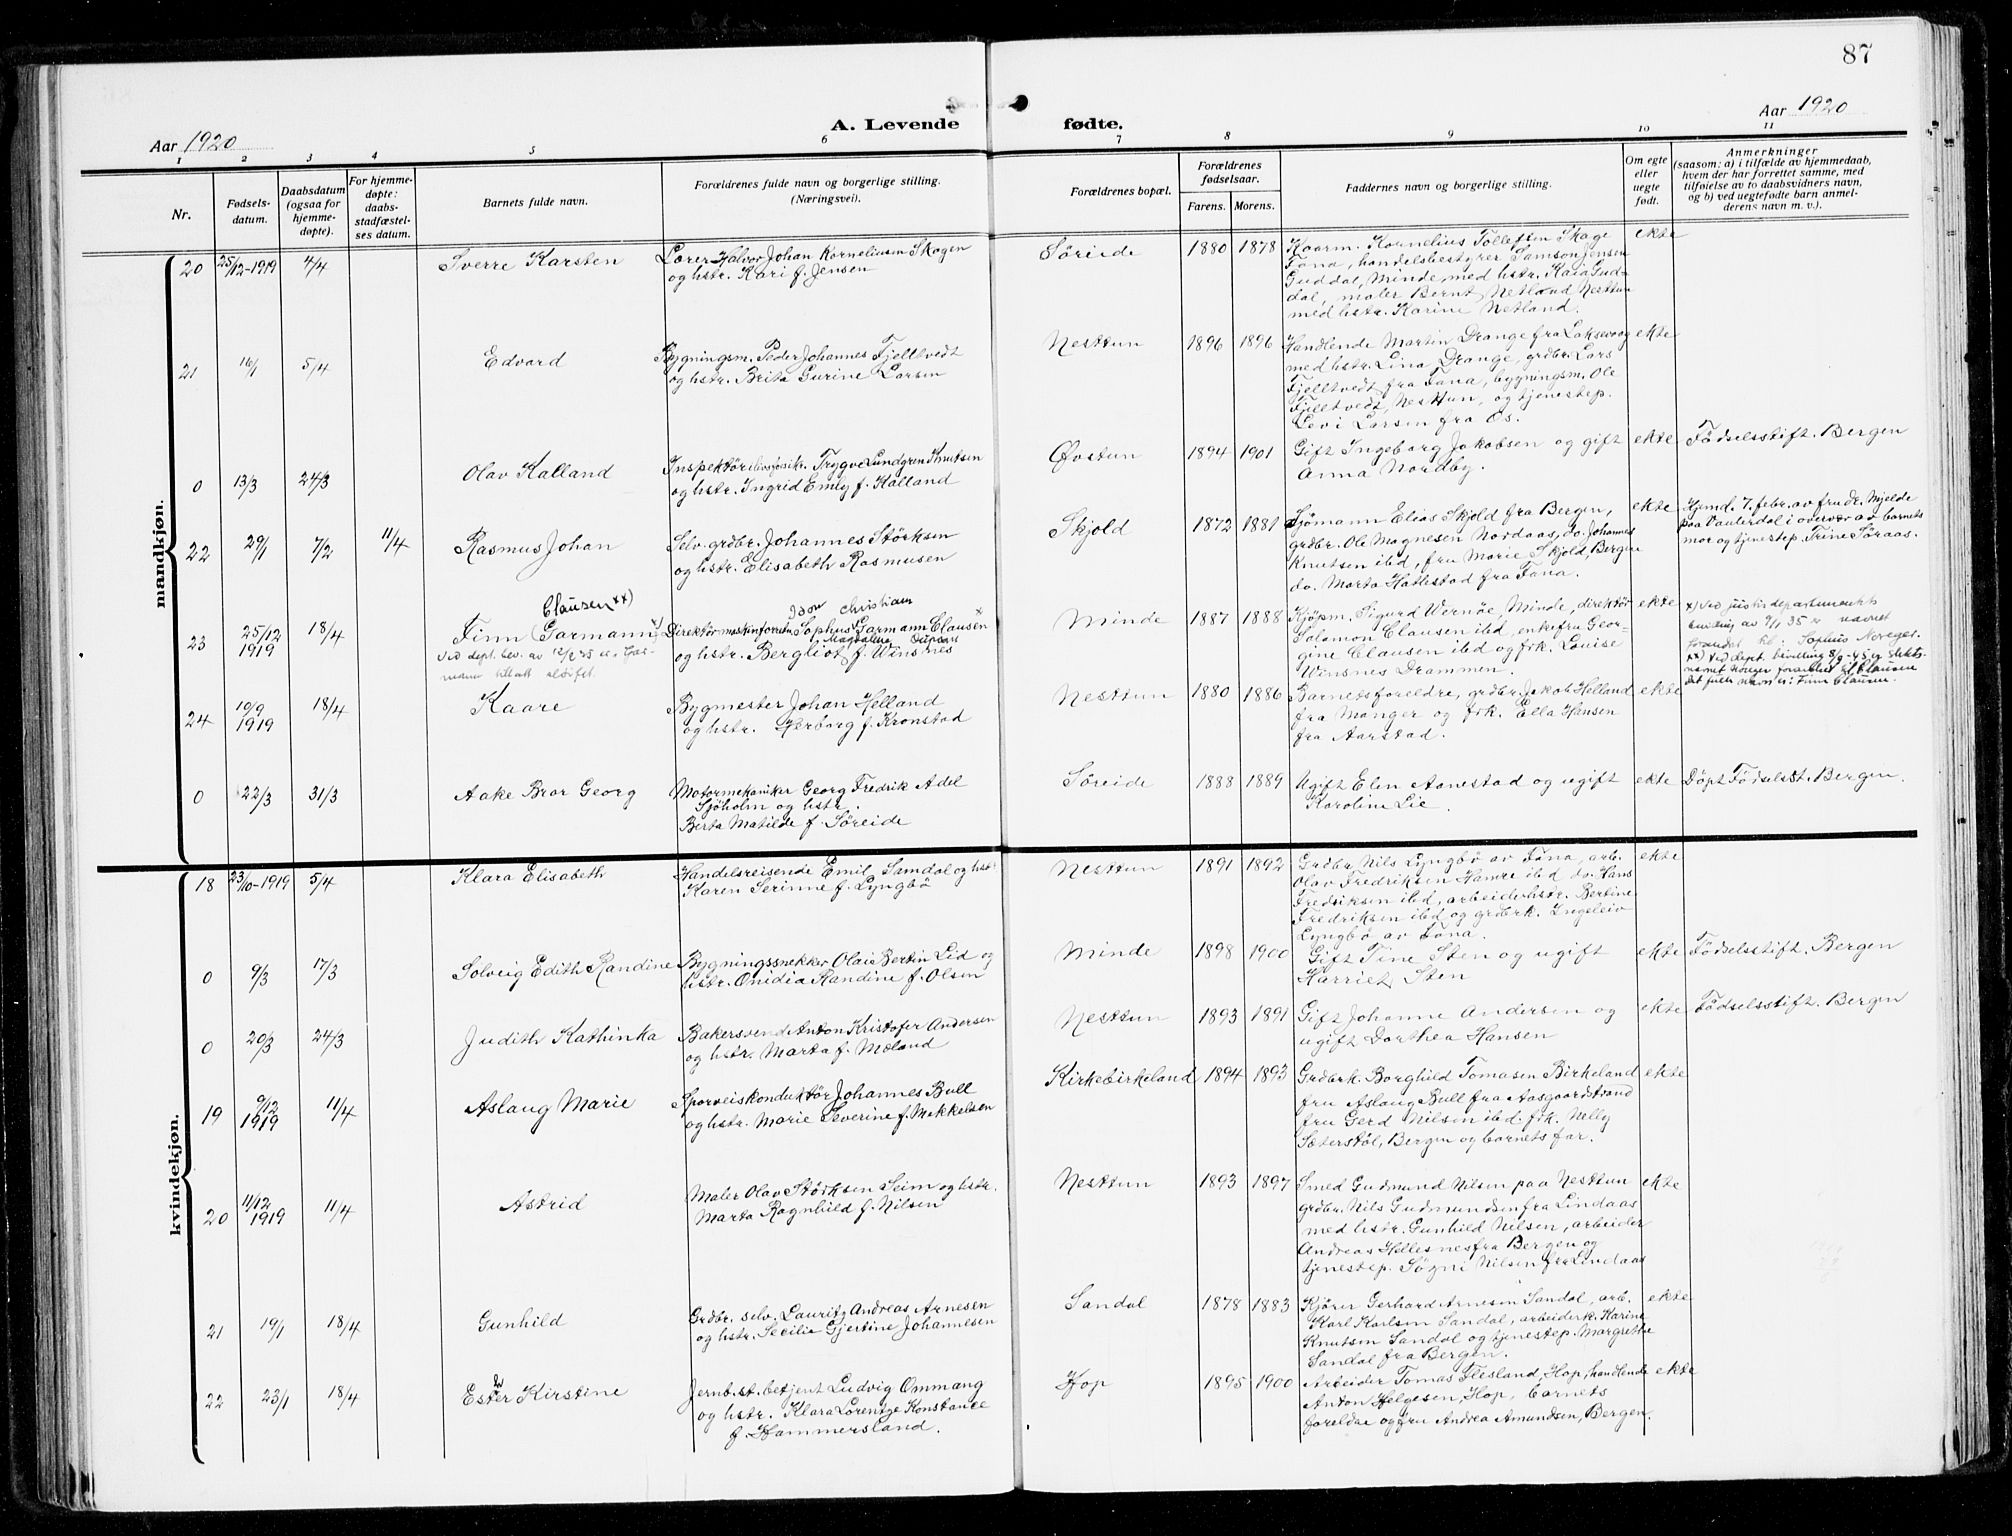 87
Aar 1920
A. Levende fødte.
Aar 1920
1 2 3 4 5 6 7 8 9 10 11
Nr.
Fødsels-
datum.
Daabsdatum
(ogsaa for
hjemme-
døpte).
For hjemme-
døpte:
daabs-
stadfæstel-
ses datum.
Barnets fulde navn.
Forældrenes fulde navn og borgerlige stilling.
(Næringsvei).
Forældrenes bopæl.
Forældrenes
fødselsaar.
Farens. Morens.
Faddernes navn og borgerlige stilling.
Om egte
eller
uegte
født.
Anmerkninger
(saasom: a) i tilfælde av hjemmedaab,
hvem der har forrettet samme, med
tilføielse av to daabsvidners navn,
og b) ved uegtefødte barn anmel-
derens navn m. v.).
mandkjøn.
20 25/12-1919 4/4 Sverre Karsten
Lærer Halvor Johan Korneliusen Skagen
og hstr. Kari f. Jensen
Søreide 1880 1878
Kaarm. Kornelius Tollefsen Skage
Fana, handelsbestyrer Samson Jensen
Guddal, Minde, med hstr. Kaia Gud-
dal, maler Bernt Netland Nesttun
med hstr. Karine Netland.
ekte
21 16/1 5/4 Edvard
Bygningsm. Peder Johannes Fjelltvedt
og hstr. Brita Gurine Larsen
Nesttun 1896 1896
Handlende Martin Drange fra Laksevaag
med hstr. Lina Drange, grdbr. Lars
Fjelltvedt fra Fana, bygningsm. Ole
Fjelltvedt, Nesttun, og tjenestep.
Levi Larsen fra Os.
ekte
0 13/3 24/3 Olav Kalland
Inspektör livsforsikr. Trygve Lundgren Knutsen
og hstr. Ingrid Emly f. Kalland
Øvstun 1894 1901
Gift Ingeborg Jakobsen og gift
Anna Nordby.
ekte
Födselsstift. Bergen
22 29/1 7/2 11/4 Rasmus Johan
Selv. grdbr. Johannes Störksen
og hstr. Elisabeth Rasmusen
Skjold 1872 1881
Sjømann Elias Skjold fra Bergen,
grdbr. Ole Magnesen Nordaas, do. Johannes
Knutsen ibd, fru Marie Skjold, Bergen
do. Marta Hatlestad fra Fana.
ekte
Hjemd. 7. febr. av fru dr. Mjelde
paa Vallerdal i overvær av barnets
mor og tjenestep. Trine Søraas.
23 25/12 1919 18/4
Clausen xx)
Finn (Garmann) x)
Ved dept. bev. av 12/2 35 er Gar-
mann tillatt sløifet.
Isow Christian
Direktör maskinforretn. Sophus Garmann Clausen
Magdalena
og hstr. Bergliot f. Winsnes
Minde 1887 1888
Kjöpm. Sigurd Wernøe, Minde, direktör
Salomon Clausen ibd, enkefru Geor-
gine Clausen ibd og frk. Louise
Winsnes Drammen.
ekte
x) Ved justisdepartementets
bevilling av 7/1 35 er navnet
forandret til: Sophus Noreger.
xx) Ved dept. bevilling 8/9-45 er slekts-
navnet Noreger forandret til Clausen
det fulle navn er: Finn Clausen.
24 10/9 1919 18/4 Kaare
Bygmester Johan Helland
og hstr. Herborg f. Kronstad
Nesttun 1880 1886
Barnets foreldre, grdbr. Jakob Helland
fra Manger og frk. Ella Hansen
fra Aarstad.
ekte
0 22/3 31/3 Aake Bror Georg
Motormekaniker Georg Fredrik Adel
Sjöholm og hstr.
Berta Matilde f. Söreide
Søreide 1888 1889
Ugift Elen Aanestad og ugift
Karoline Lie.
ekte
Döpt Födselsst. Bergen.
kvindekjøn.
18 23/10-1919 5/4 Klara Elisabeth
Handelsreisende Emil Samdal og hstr
Karen Serinne f. Lyngbö
Nesttun 1891 1892
Grdbr. Nils Lyngbö av Fana, arb.
Olav Fredriksen Hamre ibd do. Hans
Fredriksen ibd, arbeiderhstr. Bertine
Fredriksen ibd og grdbrk. Ingeleiv
Lyngbö av Fana.
ekte
0 9/3 17/3 Solveig Edith Randine
Bygningssnekker Olai Bertin Lid og
hstr. Onidia Randine f. Olsen
Minde 1898 1900
Gift Tine Sten og ugift
Harriet Sten
ekte
Födselsstift. Bergen
0 20/3 24/3 Judith Kathinka
Bakersvend Anton Kristofer Andersen
og hstr. Marta f. Mæland
Nesttun 1893 1891
Gift Johanne Andersen og
ugift Dorthea Hansen
ekte
Födselsstift. Bergen
19 9/12 1919 11/4 Aslaug Marie
Sporveiskonduktör Johannes Bull
og hstr. Marie Severine f. Mikkelsen
Kirkebirkeland 1894 1893
Grdbrk. Borghild Tomasen Birkeland
fru Aslaug Bull fra Aasgaardstrand
fru Gerd Nilsen ibd. frk. Nelly
Sæterstöl, Bergen og barnets far.
ekte
20 11/12 1919 11/4 Astrid
Maler Olav Störksen Seim og hstr.
Marta Ragnhild f. Nilsen
Nesttun 1893 1897
Smed Gudmund Nilsen paa Nesttun
grdbr. Nils Gudmundsen fra Lindaas
med hstr. Gunhild Nilsen, arbeider
Andreas Hellesnes fra Bergen og
tjenestep. Sögni Nilsen fra Lindaas
ekte
21 19/1 18/4 Gunhild
Grdbr. selv. Lauritz Andreas Arnesen
og hstr. Secilia Gjertine Johannesen
Sandal 1878 1883
Kjører Gerhard Arnesen Sandal, arb.
Karl Karlsen Sandal, arbeiderk. Karine
Knutsen Sandal og tjenestep. Margrethe
Sandal fra Bergen.
ekte
22 23/1 18/4 Ester Kirstine
Jernb. st. betjent Ludvig Ommang
og hstr. Klara Lorentze Konstance
f. Hammersland.
Hop 1895 1900
Arbeider Tomas Flesland, Hop, handlende
Anton Helgesen, Hop, barnets
foreldre og fru Andrea Amundsen, Bergen.
ekte